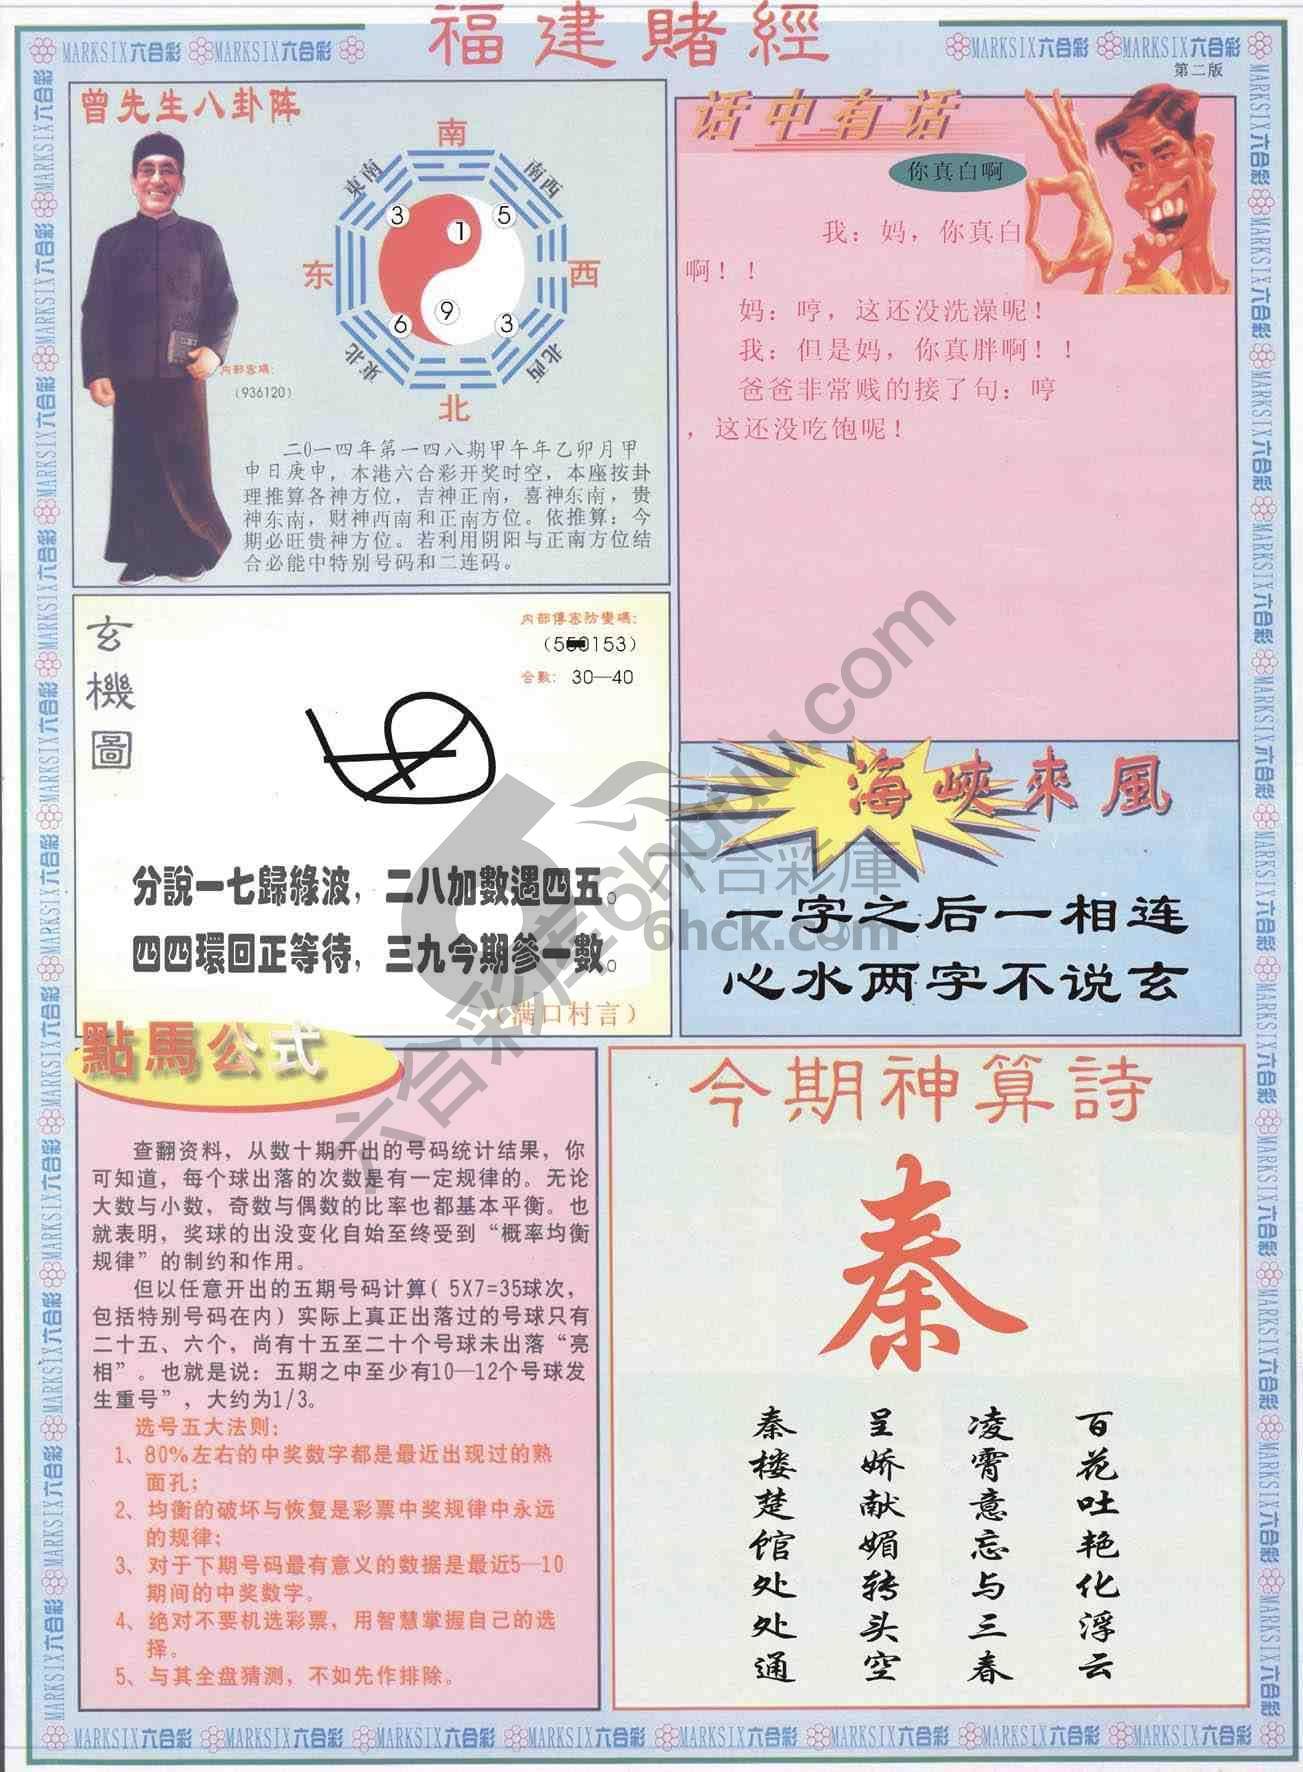 福建賭經
MARKSIX六合彩 MARKSIX六合彩
MARKSIX六合彩 MARKSIX六合彩
第二版
曾先生八卦阵
南
東南
南西
3
5
1
东
西
9
6
3
東北
北西
北
内部密碼:
(936120)
二0一四年第一四八期甲午年乙卯月甲
申日庚申，本港六合彩开奖时空，本座按卦
理推算各神方位，吉神正南，喜神东南，贵
神东南，财神西南和正南方位。依推算：今
期必旺贵神方位。若利用阴阳与正南方位结
合必能中特别号码和二连码。
话中有话
你真白啊
我：妈，你真白
啊！！
妈：哼，这还没洗澡呢！
我：但是妈，你真胖啊！！
爸爸非常贱的接了句：哼
，这还没吃饱呢！
玄機圖
内部傳密防變碼:
153)
合數: 30—40
分說一七歸綠波，二八加數遇四五。
四四環回正等待，三九今期參一數。
(满口村言)
海峽來風
一字之后一相连
心水两字不说玄
點馬公式
查翻资料，从数十期开出的号码统计结果，你
可知道，每个球出落的次数是有一定规律的。无论
大数与小数，奇数与偶数的比率也都基本平衡。也
就表明，奖球的出没变化自始至终受到“概率均衡
规律”的制约和作用。
但以任意开出的五期号码计算( 5X7=35球次，
包括特别号码在内）实际上真正出落过的号球只有
二十五、六个，尚有十五至二十个号球未出落“亮
相”。也就是说：五期之中至少有10—12个号球发
生重号”，大约为1/3。
选号五大法则：
1、80%左右的中奖数字都是最近出现过的熟
面孔；
2、均衡的破坏与恢复是彩票中奖规律中永远
的规律；
3、对于下期号码最有意义的数据是最近5—10
期间的中奖数字。
4、绝对不要机选彩票，用智慧掌握自己的选
择。
5、与其全盘猜测，不如先作排除。
今期神算詩
秦
秦楼楚馆处处通
呈娇献媚转头空
凌霄意忘与三春
百花吐艳化浮云
六合彩库6huuu.com
六合彩庫
6hck.com
MARKSIX六合彩 MARKSIX六合彩 MARKSIX六合彩 MARKSIX六合彩 MARKSIX六合彩 MARKSIX六合彩 MARKSIX六合彩 MARKSIX六合彩